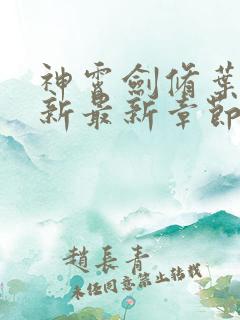 神霄劍脩葉
新最新章節
趙長青
未經同意禁止轉載